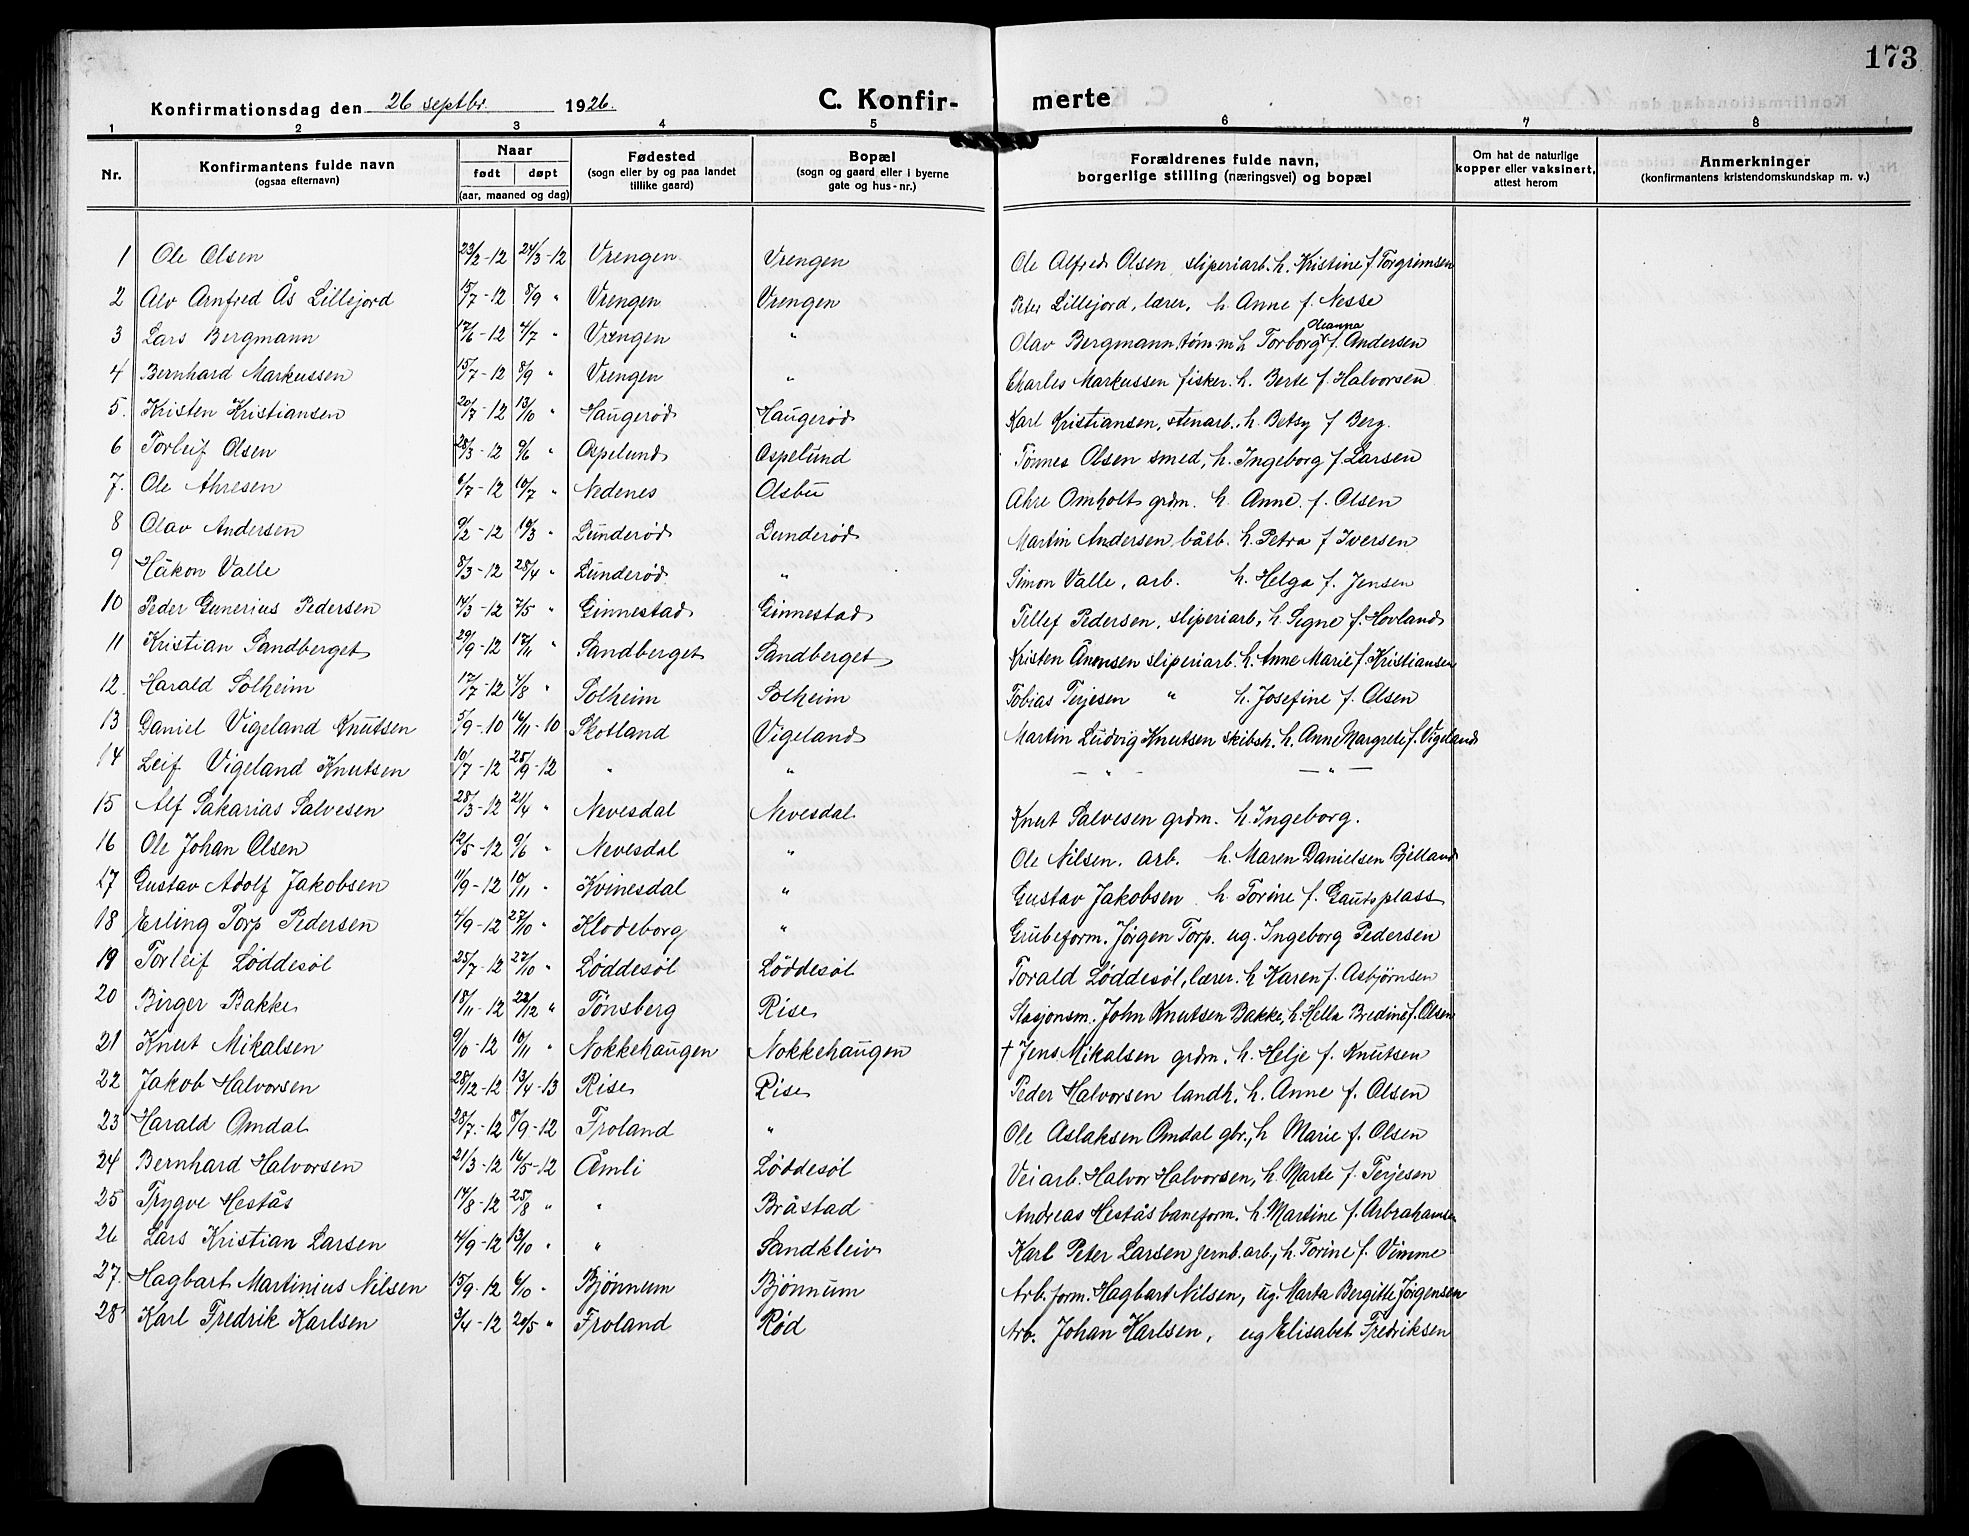 173
Konfirmationsdag den 26 septbr. 1926. C. Konfir- merte
1 2 3 4 5 6 7 8
Nr. Konfirmantens fulde navn (ogsaa efternavn) Naar født døpt (aar, maaned og dag) Fødested (sogn eller by og paa landet tillike gaard) Bopæl (sogn og gaard eller i byerne gate og hus-nr.) Forældrenes fulde navn, borgerlige stilling (næringsvei) og bopæl Om hat de naturlige kopper eller vaksinert, attest herom Anmerkninger (konfirmantens kristendomskundskap m. v.)
1 Ole Olsen 23/2-12 24/3-12 Vrengen Vrengen Ole Alfred Olsen sliperiarb. h. Kristine f. Torgrimsen
2 Alv Arnfred Ås Lillejord 15/7-12 8/9 " Vrengen Vrengen Peter Lillejord, lærer, h. Anne f. Nesse
3 Lars Bergmann 17/6-12 4/7 " Vrengen " Olav Bergmann, tøm.m. h. Torborg Oleanna f. Andersen
4 Bernhard Markussen 15/7-12 8/9 " Vrengen " Charles Markussen fisker. h. Berte f. Halvorsen
5. Kristen Kristiansen 20/7-12 13/10 " Haugerød Haugerød Karl Kristiansen, stenarb., h. Betsy f Berg.
6 Torleif Olsen 28/3-12 9/6 " Ospelund Ospelund Tønnes Olsen smed, h. Ingeborg f. Larsen
7. Ole Ahresen 6/7-12 10/7 " Nedenes Olsbu Ahre Omholt grdm. h. Anne. f. Olsen
8 Olav Andersen 9/2-12 10/3 " Lunderød Lunderød Martin Andersen båtb. h. Petra f Iversen
9 Håkon Valle 8/3-12 28/4 " Lunderød " Simon Valle, arb. h. Helga f. Jensen
10 Peder Gunerius Pedersen 7/3-12 7/5 " Ginnestad Ginnestad Tellef Pedersen, sliperiarb, h. Signe f. Hovland
11 Kristian Sandberget 29/9-12 17/11 " Sandberget Sandberget KristenÅnonsen sliperiarb. h. Anne Marie f. Kristiansen
12. Harald Solheim 17/7-12 4/8 " Solheim Solheim Tobias Terjesen " h. Josefine f. Olsen
13 Daniel Vigeland Knutsen 5/9-10 16/11-10 Skotland Vigeland Martin Ludvig Knutsen skibsk. h. Anne Margrete f. Vigeland
14 Leif Vigeland Knutsen 10/7-12 25/9-12 " " — " — — " —
15 Alf Sakarias Salvesen 28/3-12 21/4 " Nevesdal Nevesdal Knut Salvesen grdm. h. Ingeborg.
16 Ole Johan Olsen 12/5-12 9/6 " Nevesdal " Ole Nilsen. arb. h. Maren Danielsen Bjelland
17 Gustav Adolf Jakobsen 11/9-12 10/11 " Kvinesdal " Gustav Jakobsen h. Torine f. Gautsplass
18 Erling Torp Pedersen 4/9-12 27/10 " Klodeborg " Grubeform. Jørgen Torp. ug. Ingeborg Pedersen
19 Torleif Løddesøl 25/7-12 27/10 " Løddesøl Løddesøl Torald Løddesøl, lærer. h Karen f. Asbjørnsen
20 Birger Bakke 18/11-12 22/12 " Tønsberg Rise Stasjonsm. John Knutsen Bakke, h. Hella Bredine f. Olsen
21 Knut Mikalsen 9/10-12 10/11 " Nokkehaugen Nokkehaugen † Jens Mikalsen grdm. h. Helje f. Knutsen
22 Jakob Halvorsen 28/12-12 13/4-13 Rise Rise Peder Halvorsen landh. h. Anne f. Olsen
23 Harald Omdal 28/7-12 8/9-12 Froland " Ole Aslaksen Omdal gbr., h Marie f. Olsen
24 Bernhard Halvorsen 21/3-12 16/5-12 Åmli Løddesøl Veiarb. Halvor Halvorsen, h. Marte f. Terjesen
25 Trygve Hestås 14/8-12 25/8 " " Bråstad Andreas Hestås baneform. h. Martine f. Arbrahamsen
26 Lars Kristian Larsen 4/9-12 13/10 " " Sandkleiv Karl Peter Larsen jernb.arb., h. Torine f. Vimme
27. Hagbart Martinius Nilsen 15/9-12 6/10 " Bjønnum Bjønnum Arb.form. Hagbart Nilsen, ug. Marta Bergitte Jørgensen
28 Karl Fredrik Karlsen 3/4-12 20/5 " Froland Rød Arb. Johan Karlsen, ug Elisabet Fredriksen